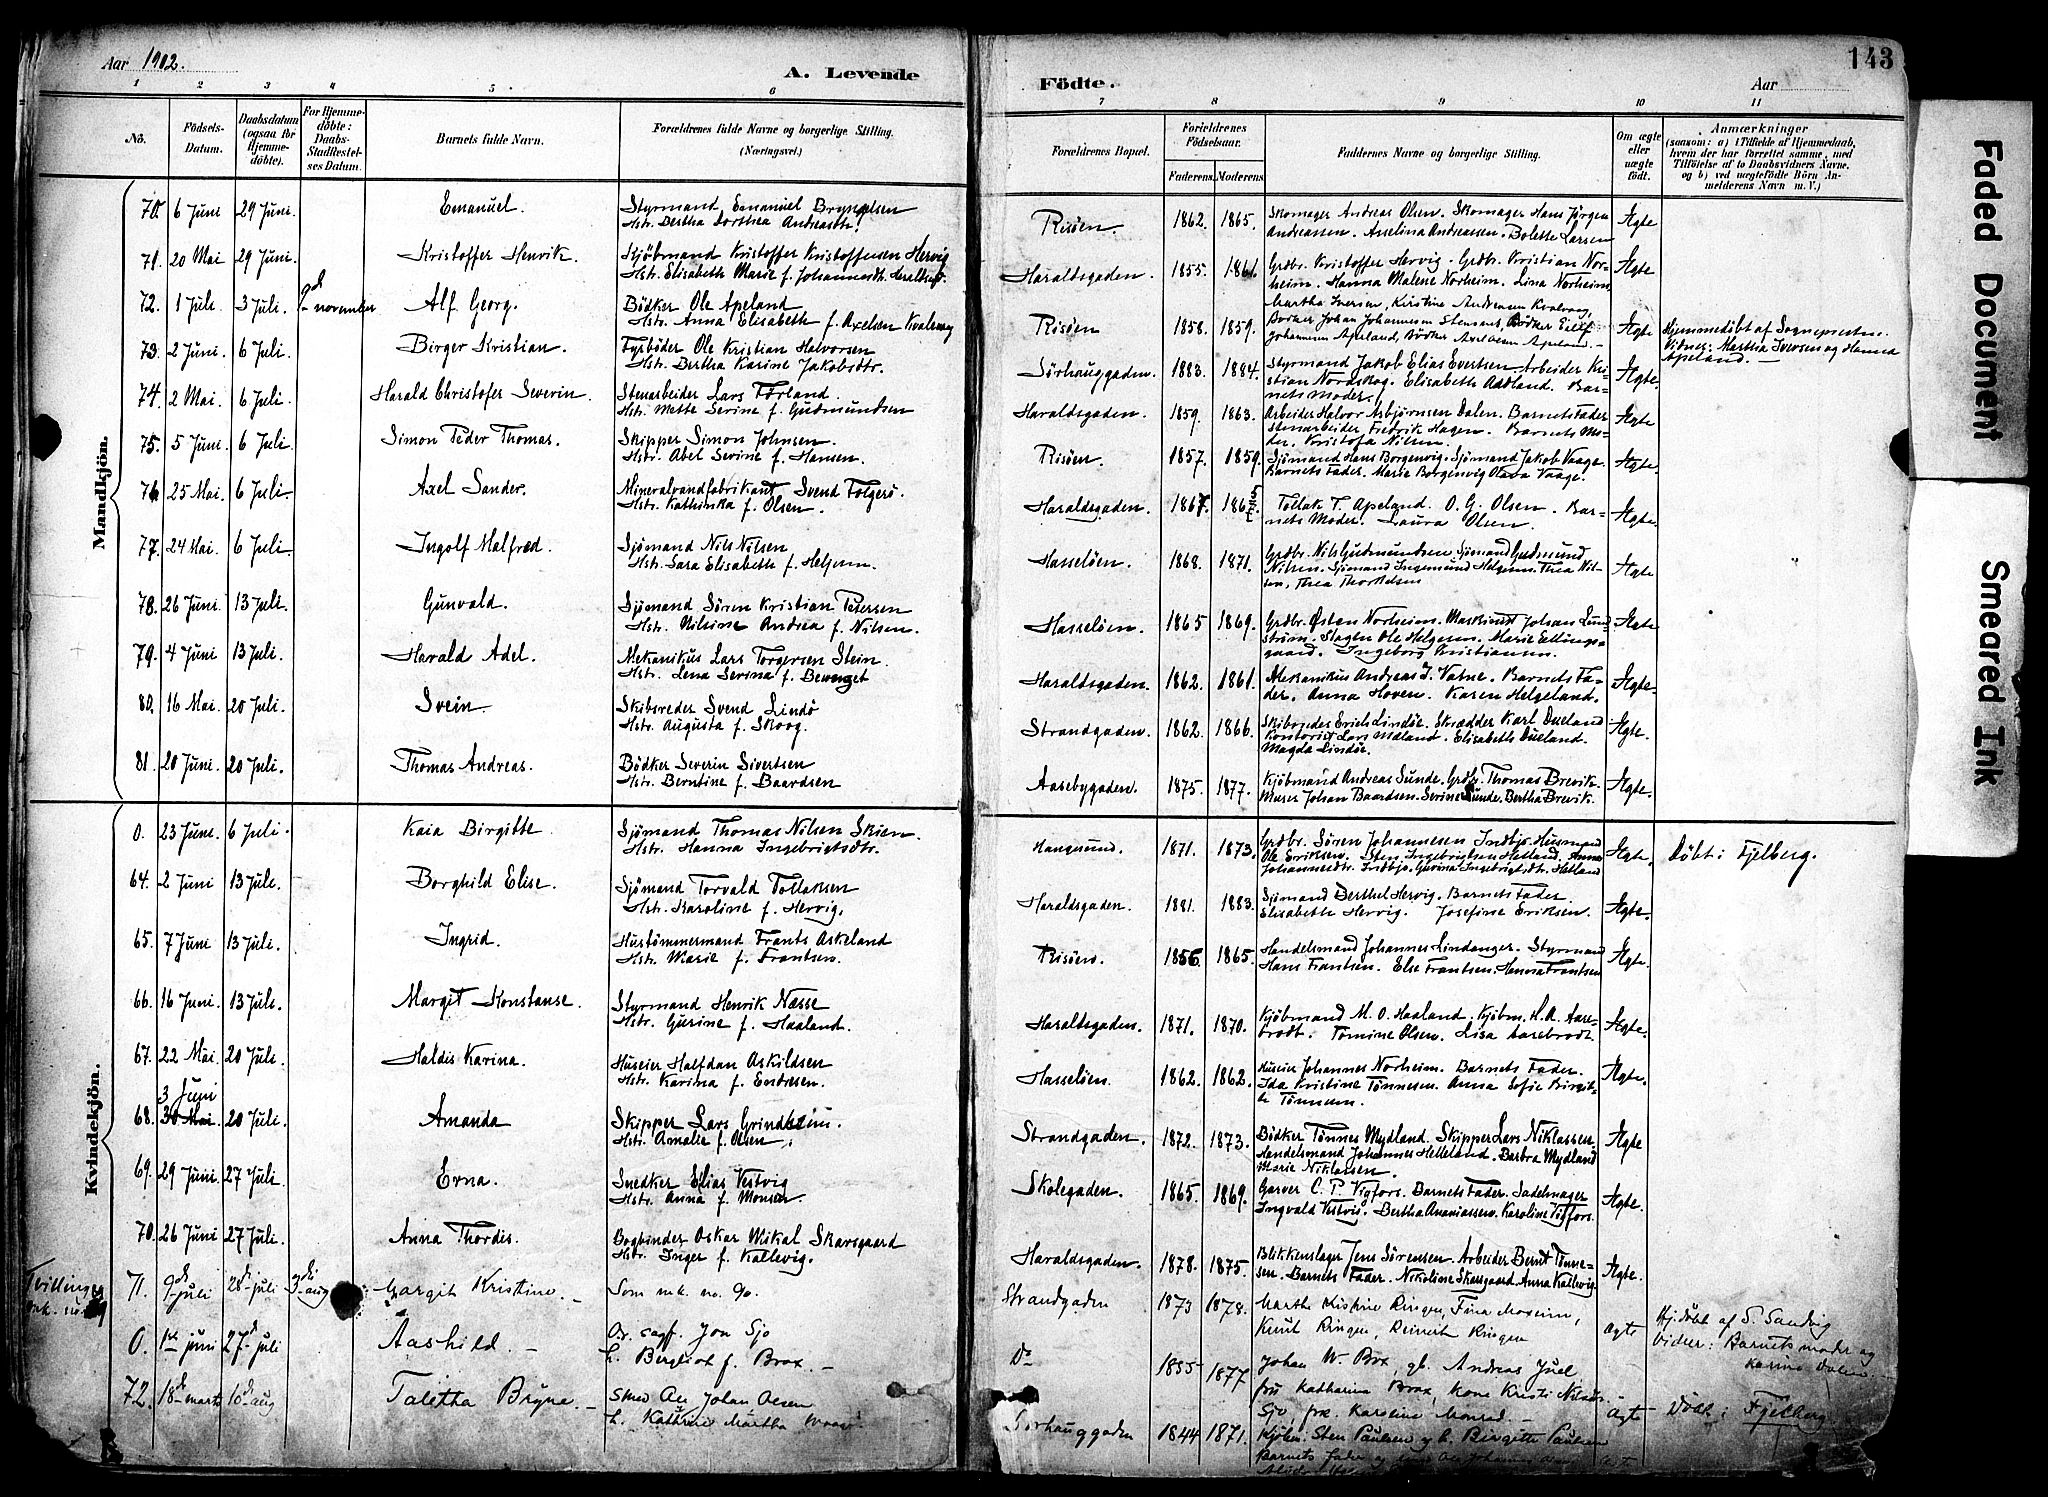 Aar 1902.
A. Levende
Födte.
Aar
143
1 2 3 4 5 6 7 8 9 10 11
No.
Födsels-Datum.
Daabsdatum (ogsaa for Hjemmedöbte).
For Hjemmedöbte: Daabs-Stadfæstelses Datum.
Barnets fulde Navn.
Forældrenes fulde Navne og borgerlige Stilling. (Næringsvei.)
Forældrenes Bopæl.
Forældrenes Födselsaar.
Faderens. Moderens.
Faddernes Navne og borgerlige Stilling.
Om ægte eller uægte født.
Anmærkninger
(saasom: a) i Tilfælde af Hjemmedaab, hvem der har forrettet samme, med Tilföielse af to Daabsvidners Navne, og b) ved uægtefödte Börn Anmelderens Navn m. V.)
Mandkjön.
70. 6 Juni 29 Juni. Emanuel. Styrmand Emanuel Brynjelsen
Hstr. Bertha Dorthea Andreasdtr. Risöen. 1862. 1865. Skomager Andreas Olsen. Skomager Hans Jörgen
Andreassen. Asselina Andreassen. Bolette Larsen Ægte
71. 20 Mai 29 Juni. Kristoffer Henrik. Kjöbmand Kristoffer Kristoffersen Hervig
Hstr. Elisabeth Marie f. Johannesdtr. Haraldsgaden. 1855. 1861. Grdbr. Kristoffer Hervig. Grdbr. Kristian Nor-
heim. Hanna Malene Norheim. Lina Norheim. Ægte
72. 1 Juli 3 Juli. 2d november Alf Georg. Bödker Ole Apeland
Hstr. Anna Elisabeth f. Axelsen Kvalevaag Risöen 1858. 1859. Martha Iversen, Kristine Andreasen Kvalevaag,
Bödker Johan Johannesen Stensnes, Bödker Eilif
Johannesen Apeland, Bödker Axel Apeland. Ægte Hjemmedöbt af Sognepresten.
Vidner: Martha Iversen og Hanna
Apeland.
73. 2 Juni. 6 Juli. Birger Kristian. Fyrböder Ole Kristian Halvorsen
Hstr. Bertha Karine Jakobsdtr. Sörhauggaden. 1883. 1884. Styrmand Jakob Elias Evertsen. Arbeider Kri-
stian Nordskog. Elisabeth Aadland. Bar-
nets Moder. Ægte.
74. 2 Mai. 6 Juli. Harald Christofer Severin. Stenarbeider Lars Förland.
Hstr. Mette Serine f. Gudmundsen Haraldsgaden. 1859. 1863. Arbeider Halvor Asbjörnsen Dalen. Barnets Fader
Stenarbeider Fredrik Hagen. Barnets Mo-
der. Kristofa Nilsen. Ægte
75. 5 Juni. 6 Juli. Simon Peder Thomas. Skipper Simon Johnsen.
Hstr. Abel Serine f. Hansen. Risöen. 1857. 1859. Sjömand Hans Borgenvig. Sjömand Jakob Vaage.
Barnets Fader. Marie Borgenvig Olava Vaage. Ægte.
76. 25 Mai. 6 Juli. Axel Sander. Mineralvandfabrikant Svend Folgerö.
Hstr. Kathinka f. Olsen. Haraldsgaden. 1867. Tollak T. Apeland. O. G. Olsen. Bar-
nets Moder. Laura Olsen. Ægte.
77. 24 Mai. 6 Juli. Ingolf Malfred. Sjömand Nils Nilsen
Hstr. Sara Elisabeth f. Helgesen. Hasselöen. 1868. 1871. Grdbr. Nils Gudmundsen. Sjömand Gudmund
Nilsen. Sjömand Ingemund Helgesen. Thea Nil-
sen, Thea Thorkelsen Ægte
78. 26 Juni 13 Juli. Gunvald. Sjömand Sören Kristian Petersen
Hstr. Nilsine Andrea f. Nilsen. Hasselöen. 1865 1869. Grdbr. Östen Norheim. Maskinist Johan Lund-
ström. Slagter Ole Helgesen. Marie Ellings-
gaard. Ingeborg Kristiansen. Ægte
79. 4 Juni 13 Juli. Harald Adel. Mekanikus Lars Torgersen Stein.
Hstr. Lena Serina f. Bevenget Haraldsgaden. 1862. 1861. Mekanikus Andreas J. Vatne. Barnets Fa-
der. Anna Hoven. Karen Helgeland. Ægte.
80. 16 Mai. 20 Juli. Svein. Skibsreder Svend Lindö
Hstr. Augusta f. Skoog. Strandgaden. 1862. 1866. Skibsreder Erich Lindöe. Skrædder Karl Dueland
Kontorist Lars Mæland. Elisabeth Dueland.
Magda Lindöe. Ægte.
81. 20 Juni. 20 Juli. Thomas Andreas. Bödker Severin Sivertsen
Hstr. Berntine f. Baardsen Aasebygaden. 1875. 1877. Kjöbmand Andreas Sunde. Grdbr. Thomas Brevik.
Murer Johan Baardsen. Serine Sunde. Bertha Brevik. Ægte.
Kvindekjön.
0. 23 Juni. 6 Juli. Kaia Birgitte. Sjömand Thomas Nilsen Skien.
Hstr. Hanna Ingebrigtsdtr. Haugesund. 1871. 1873. Grdbr. Sören Johannesen Indbjo. Husmand
Ole Eriksen. Sten Ingebrigtsen Hetland. Anna
Johannesdtr. Indbjo. Gurina Ingebrigtsdtr. Hetland Ægte. Döbt i Fjelberg.
64. 2 Juni 13 Juli. Borghild Elise. Sjömand Torvald Tollaksen
Hstr. Karoline f. Hervig. Haraldsgaden. 1881. 1883. Sjömand Berthel Hervig. Barnets Fader.
Elisabeth Hervig. Josefine Eriksen. Ægte.
65. 7 Juni 13 Juli. Ingrid. Hustömmermand Frants Askeland
Hstr. Marie f. Frantsen. Risöen. 1856 1865. Handelsmand Johannes Lindanger. Styrmand
Hans Frantsen. Else Frantsen. Hanna Frantsen Ægte.
66. 16 Juni. 13 Juli. Margit Konstanse. Styrmand Henrik Næsse
Hstr. Gurine f. Haaland. Haraldsgaden. 1871. 1870. Kjöbmand M. O. Haaland. Kjöbm. H. A. Aare-
brodt. Tomine Olsen. Lisa Aarebrodt. Ægte.
67. 22 Mai 20 Juli. Haldis Karina. Huseier Halfdan Askildsen
Hstr. Karina f. Endresen. Hasselöen. 1862. 1862. Huseier Johannes Norheim. Barnets Fader.
Ida Kristine Tönnesen. Anna Sofie Birgit-
te Tönnesen. Ægte.
68. 3 Juni 30 Mai 20 Juli. Amanda Skipper Lars Grindheim.
Hstr. Amalie f. Olsen. Strandgaden. 1872. 1873. Bödker Tönnes Mydland. Skipper Lars Niklassen
Handelsmand Johannes Helleland. Barbra Mydland
Marie Niklassen. Ægte
69. 29 Juni 27 Juli. Erna. Snedker Elias Vestvig
Hstr. Anna f. Monsen. Skolegaden. 1865. 1869. Garver C. P. Vigfors. Barnets Fader. Sadelmager
Ingvald Vestvig. Bertha Ananiassen. Karoline Vigfors. Ægte.
70. 26 Juni 27 Juli. Anna Thordis. Bogbinder Oskar Mikal Skarsgaard
Hstr. Inger f. Kallevig. Haraldsgaden. 1878. 1875. Blikkenslager Jens Sörensen. Arbeider Bernt Tönne-
sen. Barnets Fader. Nikoline Skarsgaard. Anna Kallevig. Ægte.
Tvillinger
mk. no.
71. 9d juli 28d juli 3d aug Margit Kristine. Som mk. no. 90. Strandgaden 1873 1878. Marthe Kristine Ringen,
Knut Ringen, Ringen ægte Hj.döbt af S. Sandvig
Vidner: Barnets moder og
Karine Dalen.
0. 1ste juni 27d juli Aashild. Ov. sagf. Jon Sjo
h. Bergliot f. Brox. Do 1855 1877 Johan W. Brox, Andreas Juel
fru Katharina Brox, Kone Kristi
Sjo, frk. Karoline Monrad. ægte Döbt i Fjelberg
72. 18d marts 10d aug Taletha Bryne. Smed Johan Olsen
h. Kathrine Martha Sörhauggaden 1844 1871. Kjöbm. Sten Paulsen og h. Birgitte Paulsen
Barnets fader og
Faded Document
Smeared Ink